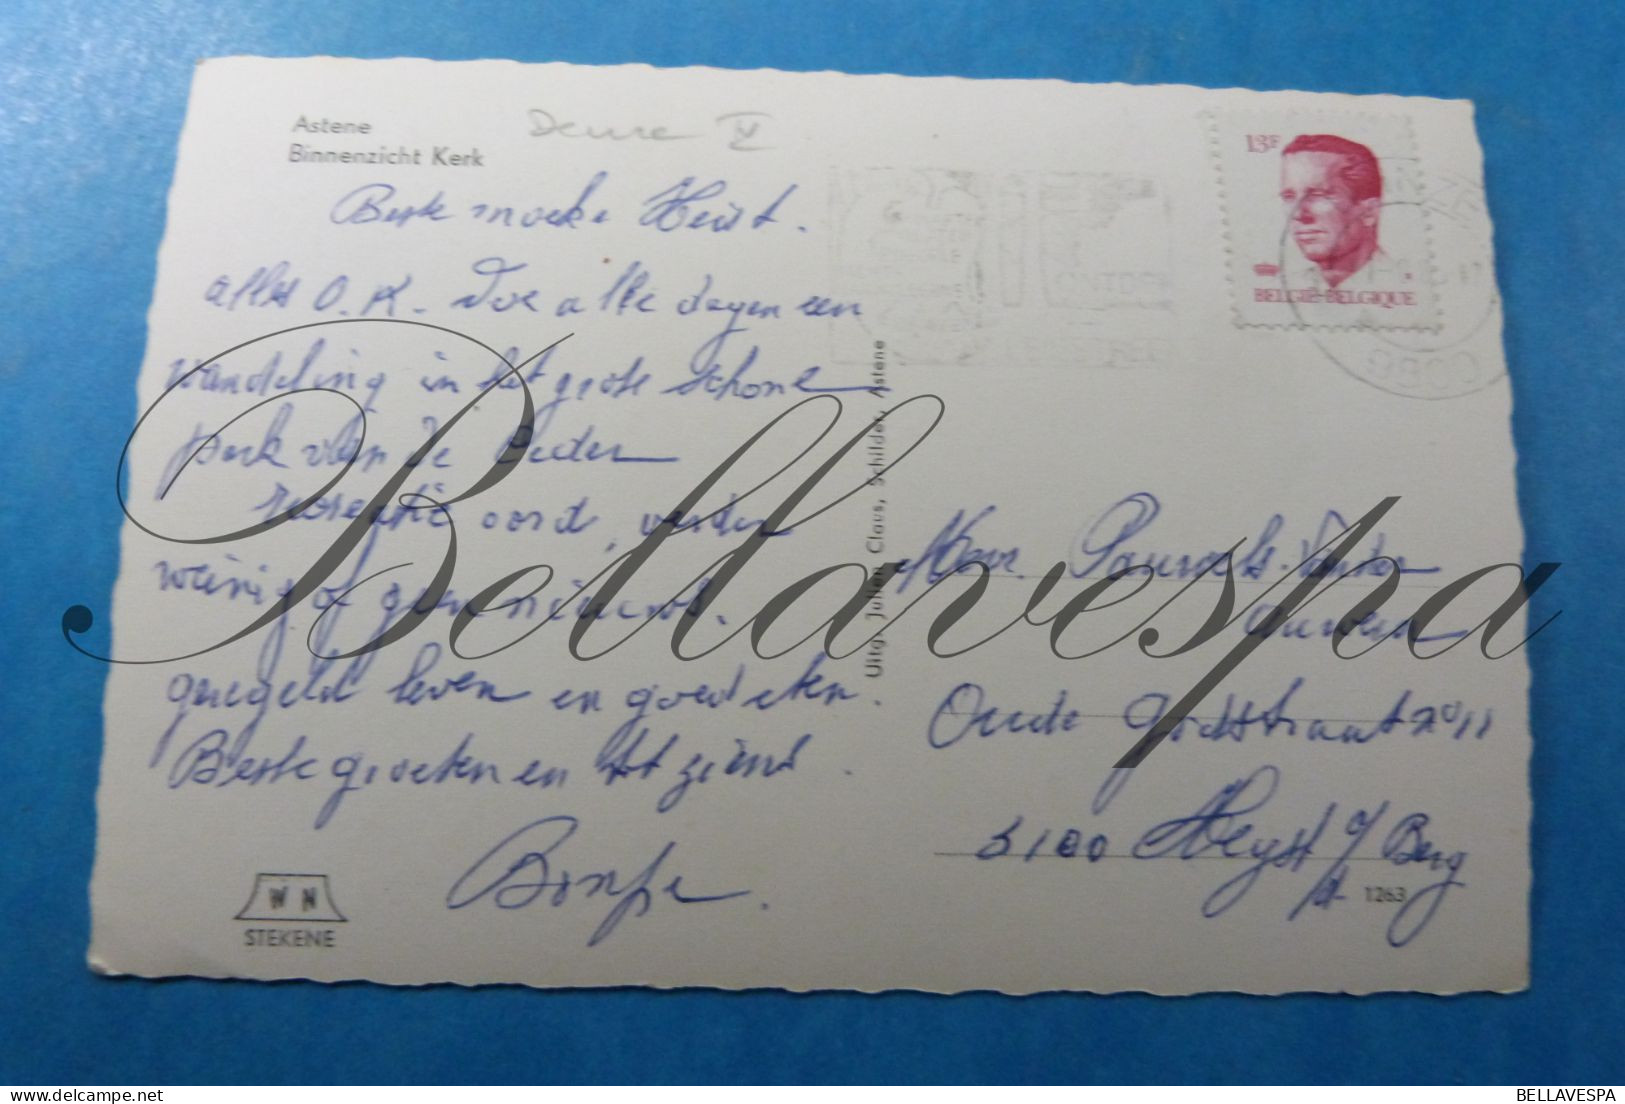 Astene
Binnenzicht Kerk
Beste moeke Heist.
alles O.K. doe alle dagen een
wandeling in het grote schone
park van de Ceder
oord, verder
weinig of geen nieuws.
geregeld leven en goed eten.
Beste groeten en tot ziens.
Bompa.
W N
STEKENE
Uitg. Julien Claus, Schilder, Astene
13F
BELGIË-BELGIQUE
Mevr. Pauwels-Vander
auwera
Oude Godstraat n° 11
3100 Heyst o/ Berg
1263
Bellavespa
BELLAVESPA